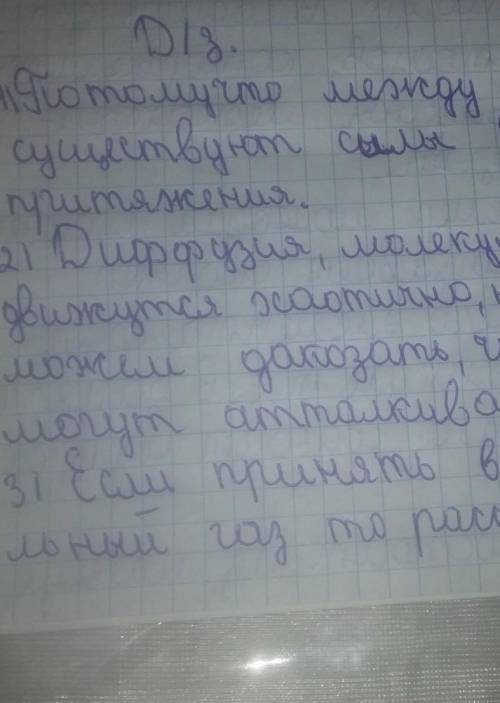 Д/з.
1) Потомучто между
существуют силы
притяжения.
2) Диффузия, молеку
движутся хаотично,
можем даказать, ч
могут атталкива
3) Если принять в
льный газ то расс